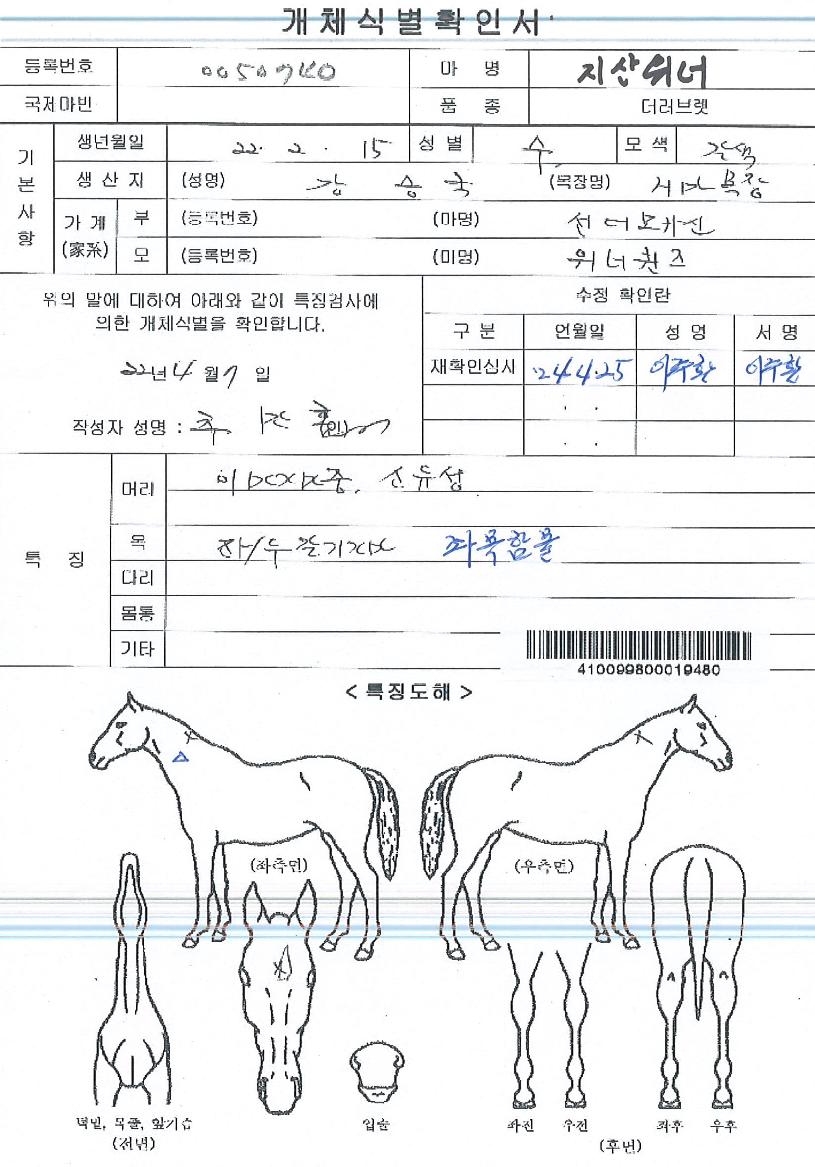 개체식별확인서
등록번호 0050940 마 명 지산위너
국제마빈 품 종 더러브렛
기본사항
생년월일 22. 2. 15 성별 수 모색 갈색
생산지 (성명) 강 승 국 (목장명)
가계 (家系) 부 (등록번호) (마명)
모 (등록번호) (마명) 위너퀸즈
위의 말에 대하여 아래와 같이 특징검사에
의한 개체식별을 확인합니다.
22년 4월 7일
작성자 성명 : (인)
수정 확인란
구분 연월일 성명 서명
재확인심시 '24.4.25 이주환 이주환
특 징
머리
목 좌목함몰
다리
몸통
기타
410099800019480
< 특징도해 >
(좌측면) (우측면)
턱밑, 목줄, 앞가슴
(전면)
입술
좌전 우전 좌후 우후
(후면)